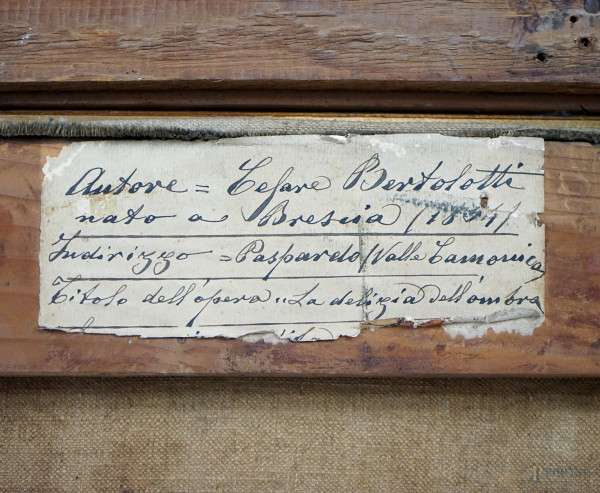 Autore = Cesare Bertolotti
nato a Brescia (1854)
Indirizzo = Paspardo (Valle Camonica
Titolo dell'opera „ La delizia dell'ombra